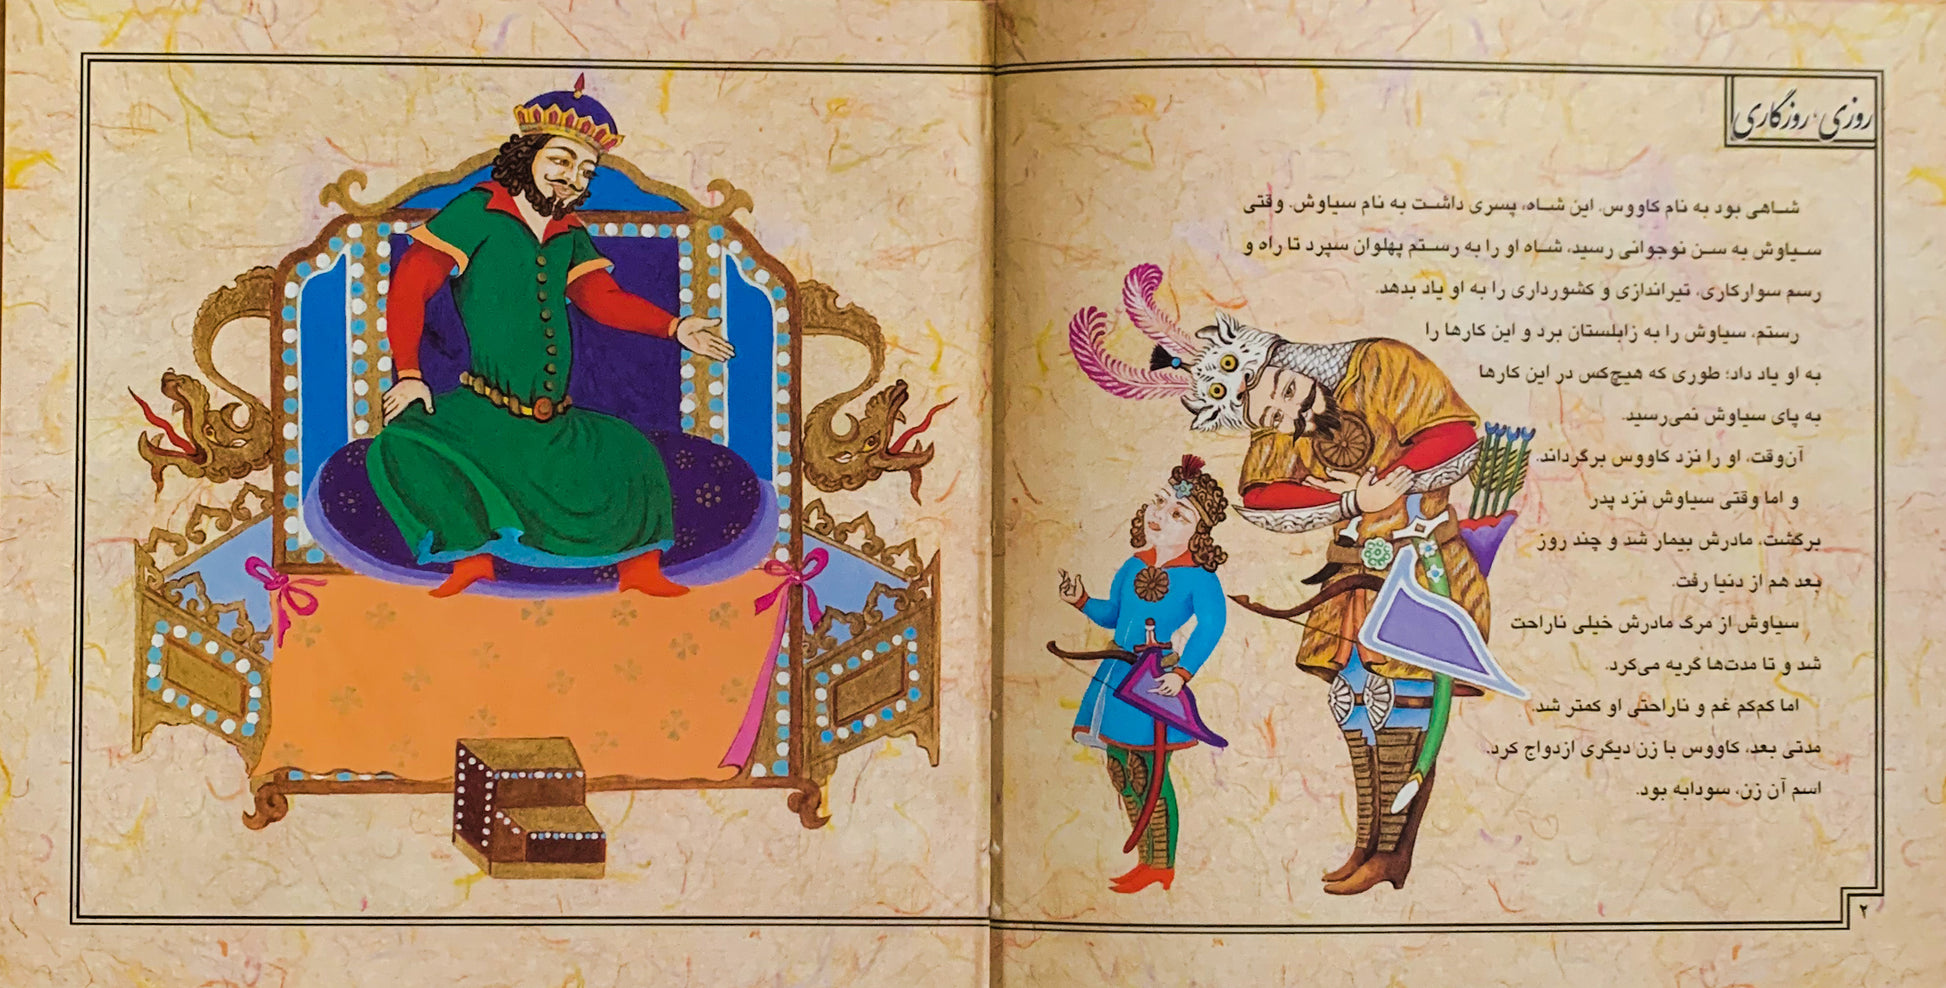 روزی، روزگاری
شاهی بود به نام کاووس. این شاه، پسری داشت به نام سیاوش. وقتی
سیاوش به سن نوجوانی رسید، شاه او را به رستم پهلوان سپرد تا راه و
رسم سوارکاری، تیراندازی و کشورداری را به او یاد بدهد.
رستم، سیاوش را به زابلستان برد و این کارها را
به او یاد داد؛ طوری که هیچ‌کس در این کارها
به پای سیاوش نمی‌رسید.
آن‌وقت، او را نزد کاووس برگرداند.
و اما وقتی سیاوش نزد پدر
برگشت، مادرش بیمار شد و چند روز
بعد هم از دنیا رفت.
سیاوش از مرگ مادرش خیلی ناراحت
شد و تا مدت‌ها گریه می‌کرد.
اما کم‌کم غم و ناراحتی او کمتر شد.
مدتی بعد، کاووس با زن دیگری ازدواج کرد.
اسم آن زن، سودابه بود.
۲